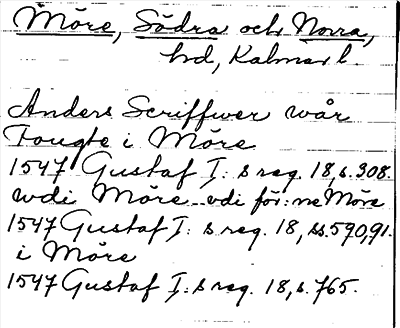 Möre, Södra och Norra,
hd, Kalmar l.
Anders Scriffwer wår
Fougte i Möre
1547 Gustaf I:s reg. 18, s. 308.
wdi Möre - vdi för:ne Möre
1547 Gustaf I:s reg. 18, ss. 590, 91.
i Möre
1547 Gustaf I:s reg. 18, s. 765.